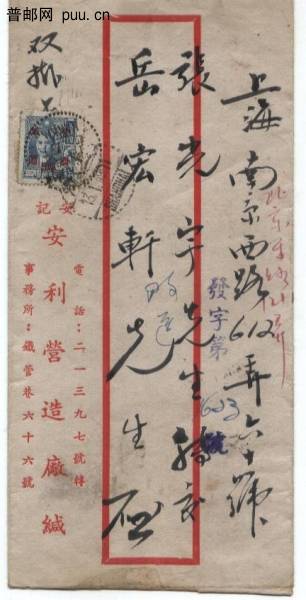 普邮网 puu.cn
上海南京西路612弄六十號
張光宇先生轉交
岳宏軒先生啟
發字第
603
號
双掛号
安記
安利營造廠緘
電話：二一三九七號轉
事務所：鐵管巷六十六號